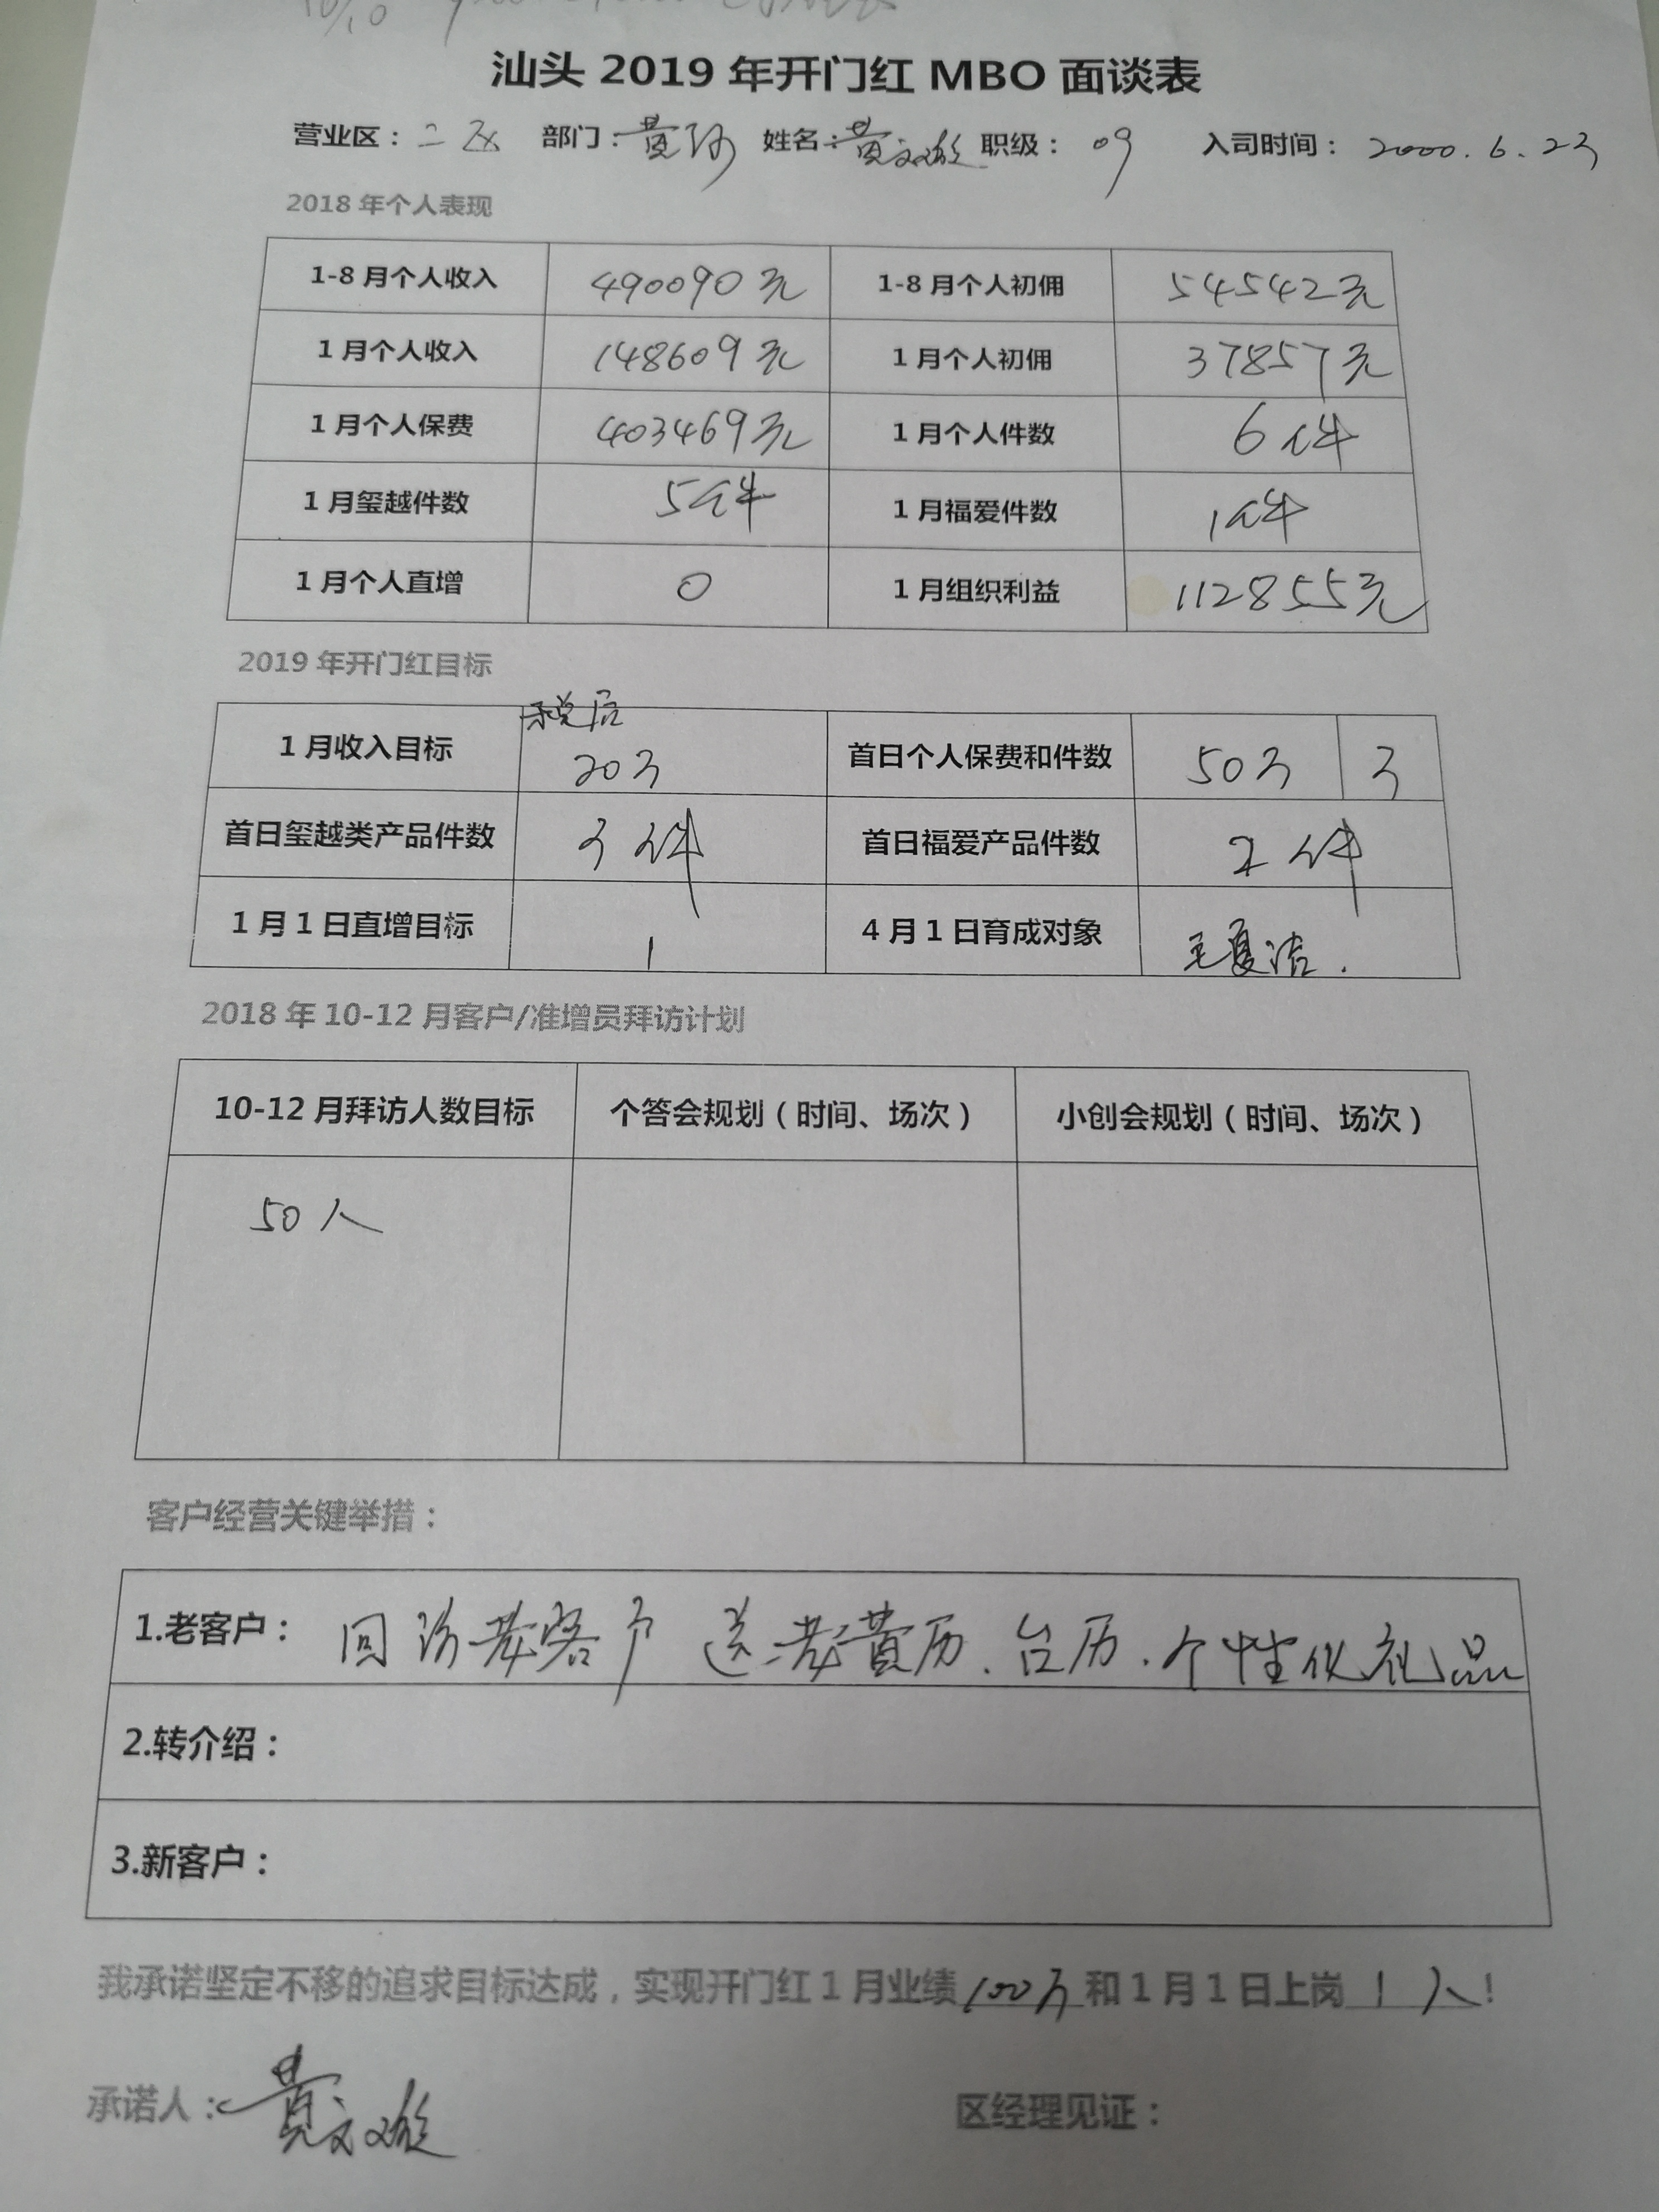 汕头 2019 年开门红 MBO 面谈表
营业区： 二区 部门： 黄 姓名： 黄 职级： 09 入司时间： 2000.6.23
2018 年个人表现
1-8 月个人收入 490090元 1-8 月个人初佣 54542元
1 月个人收入 148609元 1 月个人初佣 37857元
1 月个人保费 403469元 1 月个人件数 6件
1 月玺越件数 5件 1 月福爱件数 1件
1 月个人直增 0 1 月组织利益 112855元
2019 年开门红目标
税后
1 月收入目标 20万 首日个人保费和件数 50万 3
首日玺越类产品件数 3件 首日福爱产品件数 2件
1 月 1 日直增目标 1 4 月 1 日育成对象 夏洁.
2018 年 10-12 月客户/准增员拜访计划
10-12 月拜访人数目标 个答会规划（时间、场次） 小创会规划（时间、场次）
50人
客户经营关键举措：
1.老客户： 回访老客户 送 历、台历、个性化礼品
2.转介绍：
3.新客户：
我承诺坚定不移的追求目标达成，实现开门红 1 月业绩 100万 和 1 月 1 日上岗 1人！
承诺人： 黄 区经理见证：